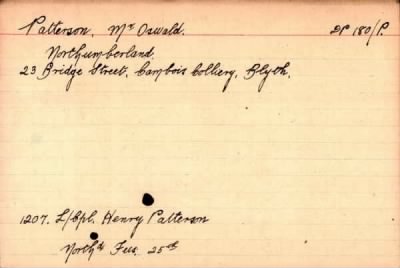 Patterson, Mr Oswald. DP 180/P.
Northumberland.
23 Bridge Street, Cambois Colliery, Blyth.
1207. L/Cpl. Henry Patterson
Northd Fus. 25th